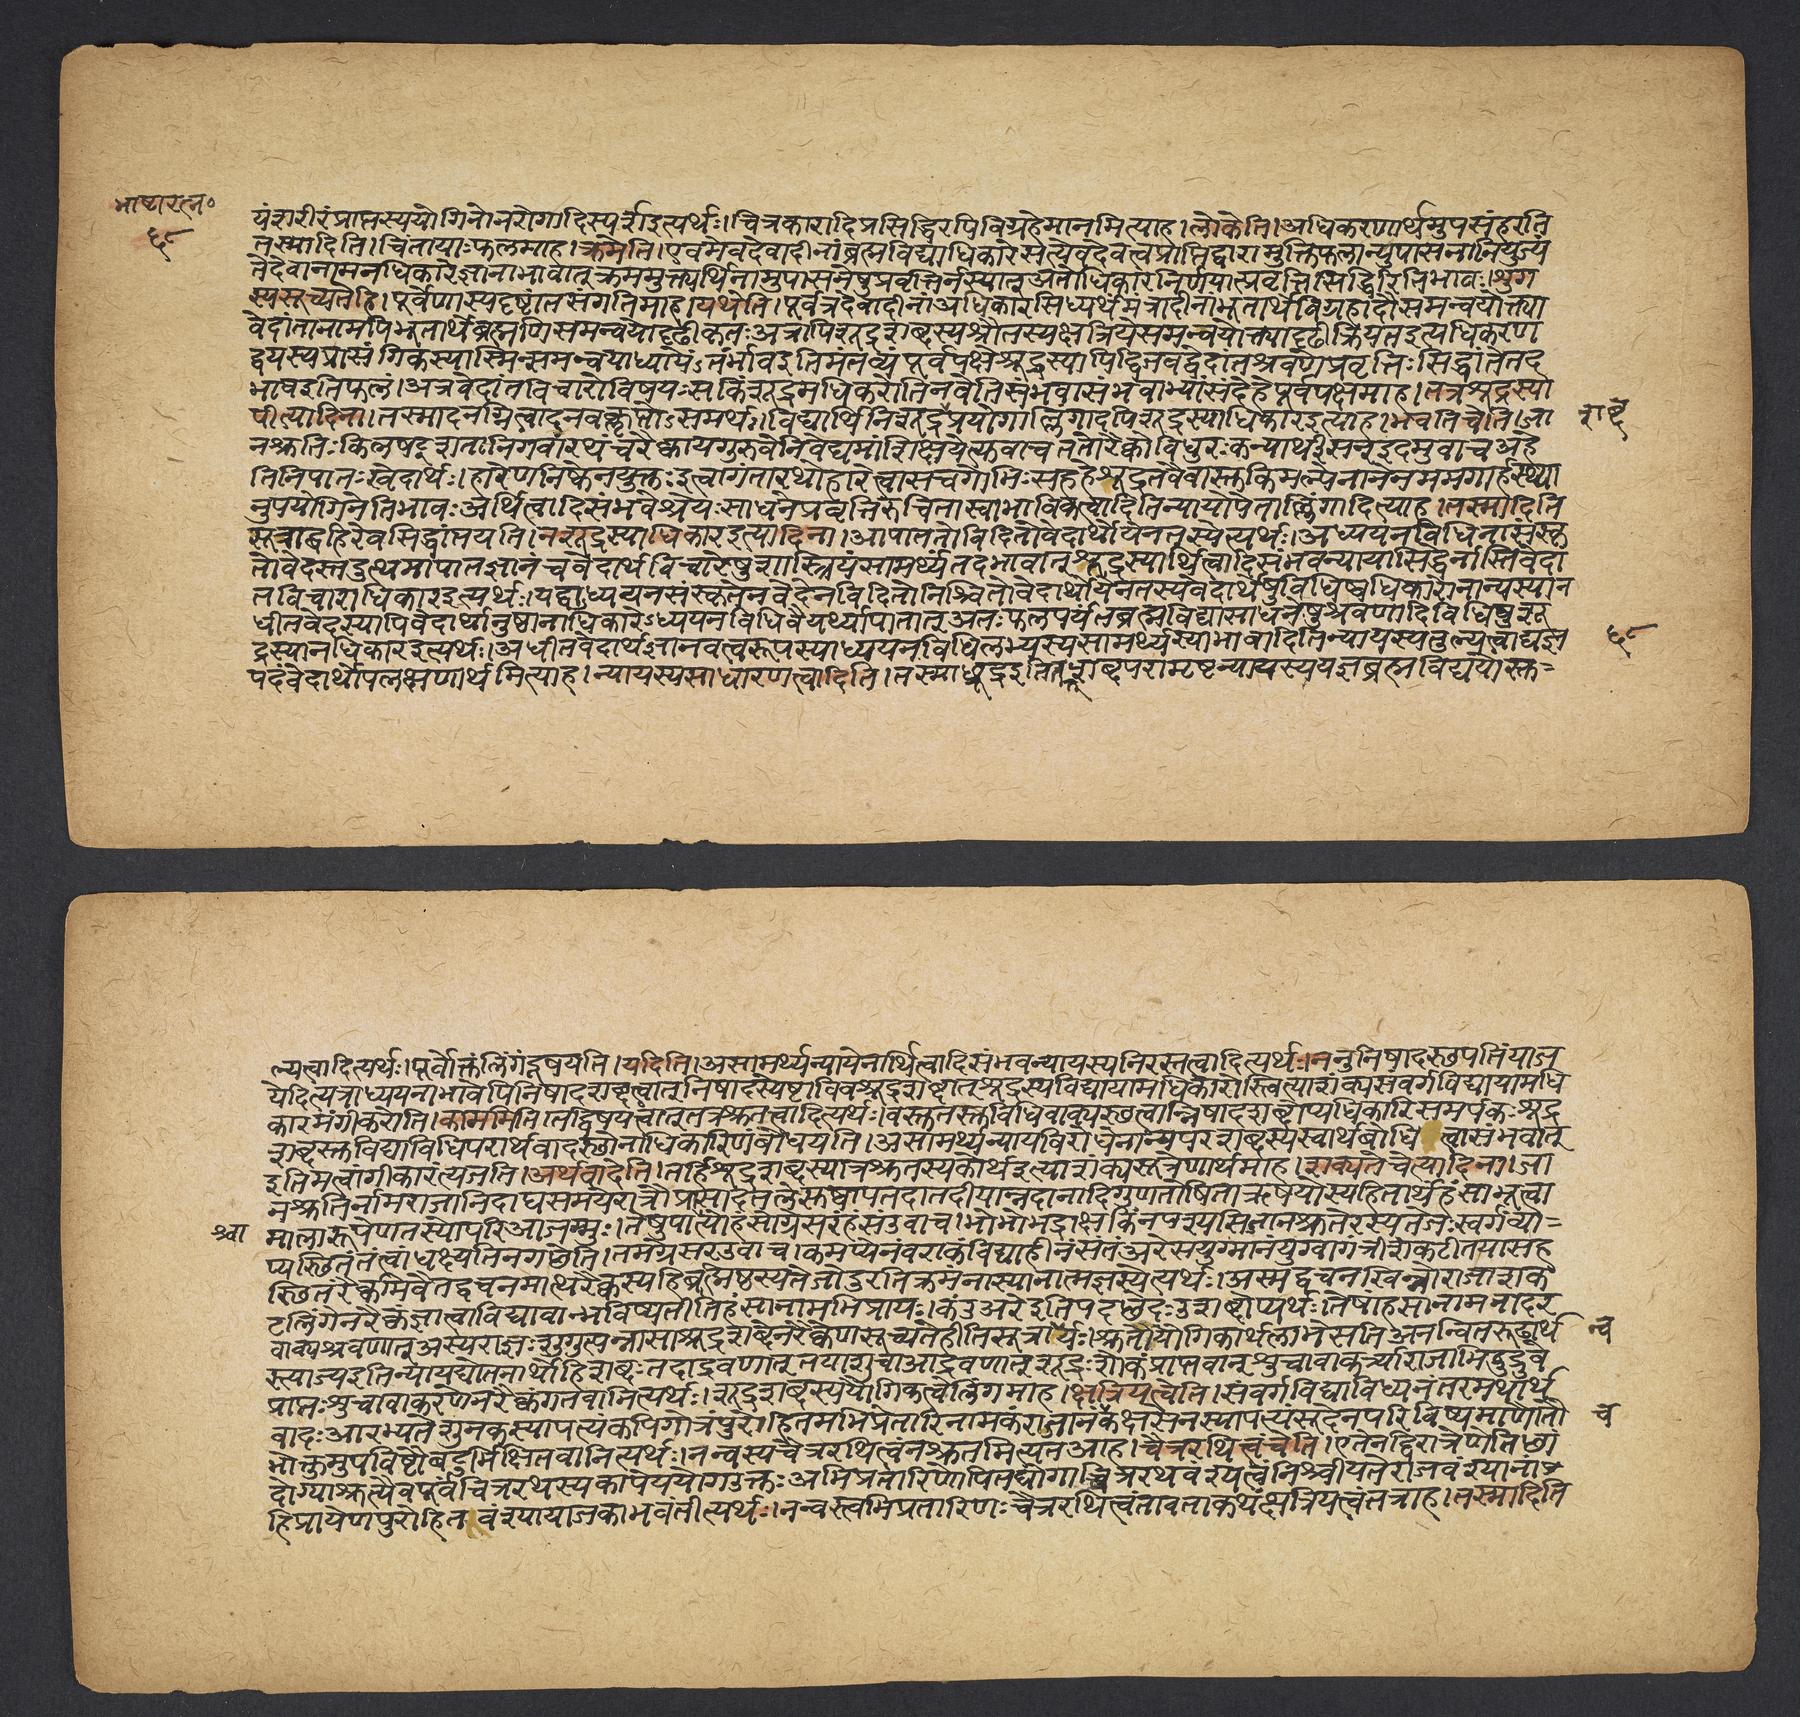 भाष्यरत्न०
६८
यंशरीरंप्राप्तस्ययोगिनोनरोगादिस्पर्शइत्यर्थः।चित्रकारादिप्रसिद्धिरपिविग्रहेमानमित्याह।लोकेति।अधिकरणार्थमुपसंहरति
तस्मादिति।चिंतायाःफलमाह।क्रमेति।एवमेवदेवादीनांब्रह्मविद्याधिकारेसत्येवदेवत्वप्राप्तिद्वारामुक्तिफलान्युपासनानियुज्यं
तेदेवानामनधिकारेज्ञानाभावात्क्रममुक्त्यर्थिनामुपासनेषुप्रवृत्तिर्नस्यात्अतोधिकारनिर्णयात्प्रवृत्तिसिद्धिरितिभावः।शुग
स्यसूच्यतेहि।पूर्वेणास्यदृष्टांतसंगतिमाह।यथेति।पूर्वत्रदेवादीनांअधिकारसिध्यर्थंमंत्रादीनांभूतार्थेविग्रहादौसमन्वयोक्त्या
वेदांतानामपिभूतार्थेब्रह्मणिसमन्वयोदृढीकृतःअत्रापिशूद्रशब्दस्यश्रौतस्यक्षत्रियेसमन्वयोक्त्यादृढीक्रियतइत्यधिकरण
द्वयस्यप्रासंगिकस्यास्मिन्समन्वयाध्यायेंऽतर्भावइतिमंतव्यंपूर्वपक्षेशूद्रस्यापिद्विजवद्वेदांतश्रवणेप्रवृत्तिःसिद्धांतेतद
भावइतिफलं।अत्रवेदांतविचारोविषयःसकिंशूद्रमधिकरोतिनवेतिसंभवासंभवाभ्यांसंदेहेपूर्वपक्षमाह।तत्रशूद्रस्या
पीत्यादिना।तस्मादनग्नित्वादनवक्लृप्तोऽसमर्थः।विद्यार्थिनिशूद्रप्रयोगाल्लिंगादपिशूद्रस्याधिकारइत्याह।भवतिचेति।जा
शब्द
नश्रुतिःकिलषट्शतानिगवांरथंचरैक्कायगुरवेनिवेद्यमांशिक्षयेत्युवाचततोरैक्कोविधुरःकन्यार्थीसन्इदमुवाचअहे
तिनिपातःखेदार्थः।हारेणनिष्केनयुक्तःइत्वागंतारथोहारेत्वासचगोभिःसहहेशूद्रतवैवास्तुकिमल्पेनानेनममगार्हस्थ्या
नुपयोगिनेतिभावःअर्थित्वादिसंभवेश्रेयःसाधनेप्रवृत्तिरुचितास्वाभाविकत्वादितिन्यायोपेताल्लिंगादित्याह।तस्मादिति
सूत्राद्बहिरेवसिद्धांतयति।नशूद्रस्याधिकारइत्यादिना।आपाततोविदितोवेदार्थोयेनतस्येत्यर्थः।अध्ययनविधिनासंस्कृ
तोवेदस्तदुत्थमापातज्ञानंचवेदार्थविचारेषुशास्त्रियंसामर्थ्यंतदभावात्शूद्रस्यार्थित्वादिसंभवन्यायासिद्धेर्नास्तिवेदां
तविचाराधिकारइत्यर्थः।यद्वाध्ययनसंस्कृतेनवेदेनविदितोनिश्चितोवेदार्थोयेनतस्यवेदार्थेषुविधिष्वधिकारोनान्यस्यान
धीतवेदस्यापिवेदार्थानुष्ठानाधिकारेऽध्ययनविधिवैयर्थ्यापातात्अतःफलपर्यंतब्रह्मविद्यासाधनेषुश्रवणादिविधिषुशू
द्रस्यानधिकारइत्यर्थः।अधीतवेदार्थज्ञानवत्वरूपस्याध्ययनविधिलभ्यस्यसामर्थ्यस्याभावादितिन्यायस्यतुल्यत्वाद्यज्ञ
६८
पदंवेदार्थोपलक्षणार्थमित्याह।न्यायस्यसाधारणत्वादिति।तस्माच्छूद्रइतितच्छब्दपरामृष्टन्यायस्ययज्ञब्रह्मविद्ययोस्तु=
ल्यत्वादित्यर्थः।पूर्वोक्तंलिंगंदूषयति।यदिति।असामर्थ्यन्यायेनार्थित्वादिसंभवन्यायस्यनिरस्तत्वादित्यर्थः।ननुनिषादस्थपतिंयाज
येदित्यत्राध्ययनाभावेपिनिषादशब्दत्वात्निषादस्येष्टाविवशूद्रशब्दात्शूद्रस्यविद्यायामधिकारोस्त्वित्याशंक्यसंवर्गविद्यायामधि
कारमंगीकरोति।काममिति।तद्विषयत्वात्तत्रश्रुतत्वादित्यर्थः।वस्तुतस्तुविधिवाक्यस्थत्वान्निषादशब्दोप्यधिकारिसमर्पकःशूद्र
शब्दस्तुविद्याविधिपरार्थवादस्थोनाधिकारिणंबोधयति।असामर्थ्यन्यायविरोधेनान्यपरशब्दस्यस्वार्थबोधि त्वासंभवात्
इतिमत्वांगीकारंत्यजति।अर्थवादेति।तर्हिशूद्रशब्दस्यात्रश्रुतस्यकोर्थइत्याशंक्यसूत्रेणार्थमाह।शक्यतेचेत्यादिना।जा
नश्रुतिर्नामराजानिदाघसमयेरात्रौप्रासादतलेसुष्वापतदातदीयान्नदानादिगुणतोषिताऋषयोस्यहितार्थंहंसाभूत्वा
श्वा
मालारूपेणतस्योपरिआजग्मुः।तेषुपाश्चात्योहंसोग्रेसरंहंसंउवाच।भोभोभद्राक्षकिंनपश्यसिजानश्रुतेरस्यतेजःस्वर्गंव्या=
प्यस्थितंतत्त्वांधक्ष्यतिनगछेति।तमग्रेसरउवाच।कमप्येनंवराकंविद्याहीनंसंतंअरेसयुग्मानंयुग्वागंत्रीशकटीतयासह
स्थितंरैक्कमिवैतद्वचनमात्थरैक्कस्यहिब्रह्मिष्ठस्यतेजोदुरतिक्रमंनास्यानात्मज्ञस्येत्यर्थः।अस्मद्वचनखिन्नोराजाशक
टलिंगेनरैक्कंज्ञात्वाविद्यावान्भविष्यतीतिहंसानामभिप्रायः।कंउअरेइतिपदछेदःउशब्दोप्यर्थःतेषांहंसानामनादर
वाक्यश्रवणात्अस्यराज्ञःशुगुत्पन्नासाशूद्रशब्देनरैक्केणसूच्यतेहीतिसूत्रार्थः।श्रुतौयोगिकार्थलाभेसतिअनन्वितरूढ्यर्थ
न्व
स्त्याज्यइतिन्यायद्योतनार्थोहिशब्दःतदाद्रवणात्तयाशुचाआद्रवणात्शूद्रःशोकंप्राप्तवान्शुचावाकर्त्र्याराजाभिदुद्रुवे
प्राप्तःशुचावाकरणेनरैक्कंगतवानित्यर्थः।शूद्रशब्दस्ययौगिकत्वेलिंगमाह।क्षत्रियत्वेति।संवर्गविद्याविध्यनंतरमथार्थ
वादःआरभ्यतेशुनकस्यापत्यंकपिगोत्रंपुरोहितमभिप्रतारिनामकंराजानंकक्षसेनस्यापत्यंसूदेनपरिविष्यमाणौतौ
चे
भोक्तुमुपविष्टौबटुर्भिक्षितवानित्यर्थः।नन्वस्यचैत्ररथित्वंनश्रुतमित्यतआह।चैत्ररथित्वंचेति।एतेनद्विरात्रेणेतिछां
दोग्यश्रुत्यैवपूर्वंचित्ररथस्यकापेययोगउक्तःअभिप्रतारिणोपितद्योगाच्चित्ररथवंश्यत्वंनिश्चीयतेराजवंश्यानां
हिप्रायेणपुरोहितवंश्यायाजकाभवंतीत्यर्थः।नन्वस्त्वभिप्रतारिणःचैत्ररथित्वंतावताकथंक्षत्रियत्वंतत्राह।तस्मादिति